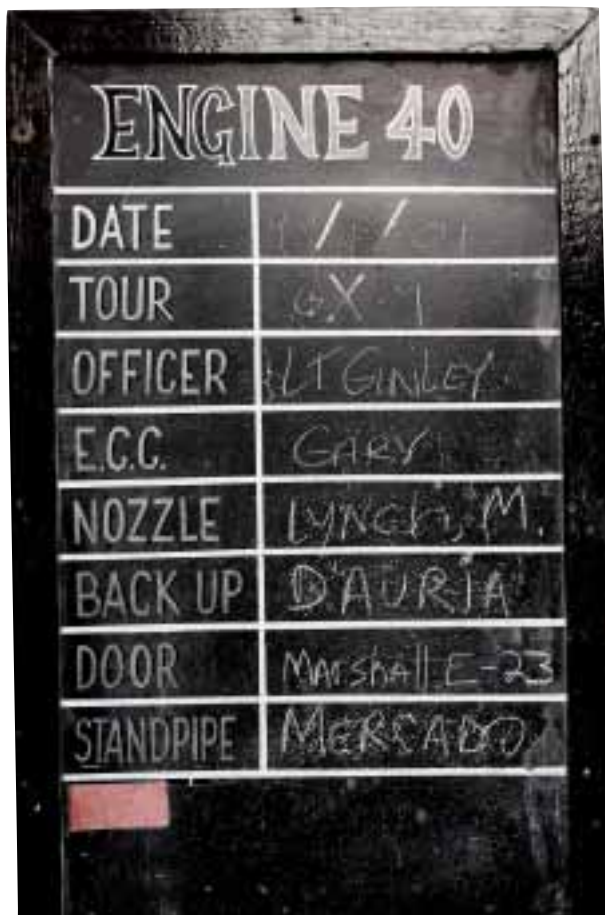 ENGINE 40
DATE / /
TOUR 6X9
OFFICER LT GINLEY
E.C.C. GARY
NOZZLE LYNCH, M.
BACK UP D'AURIA
DOOR Marshall E-23
STANDPIPE MERCADO